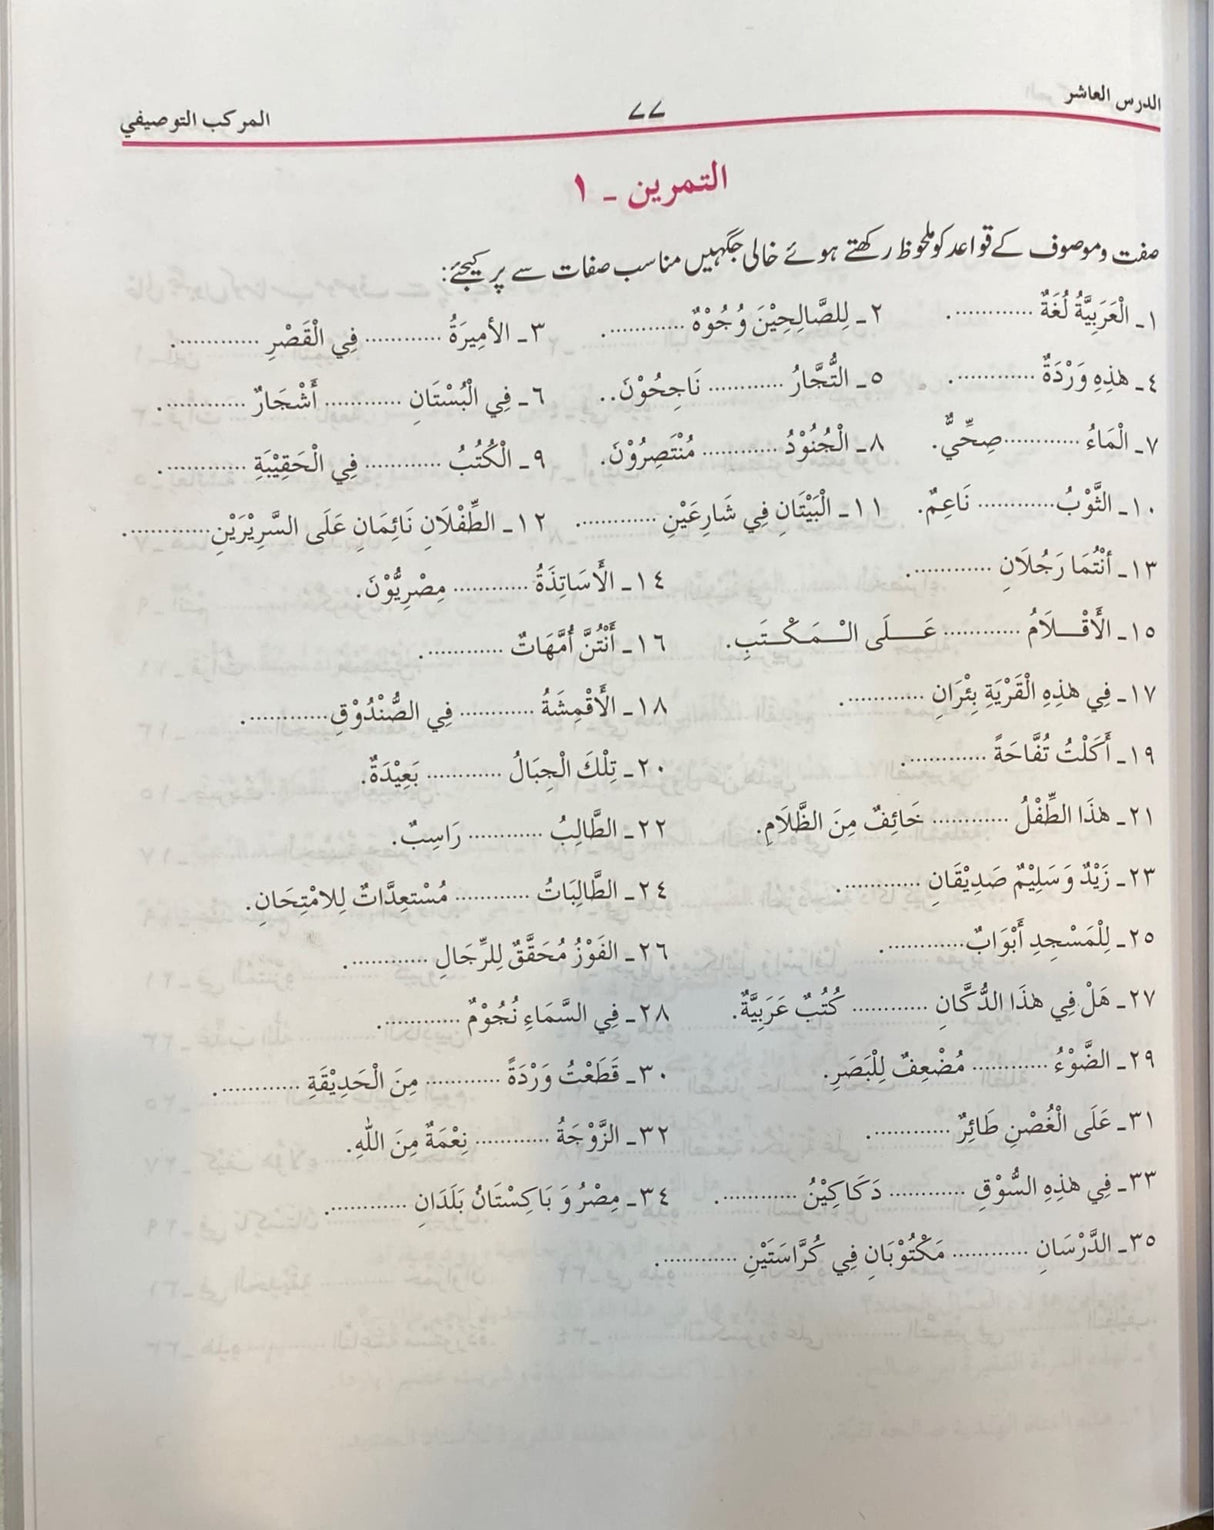 الدرس العاشر ٧٧ المركب التوصيفي
التمرين ـ ١
صفت وموصوف کے قواعد کو ملحوظ رکھتے ہوئے خالی جگہیں مناسب صفات سے پر کیجئے:
١ـ الْعَرَبِيَّةُ لُغَةٌ ............. ٢ـ لِلصَّالِحِيْنَ وُجُوْهٌ ............. ٣ـ الأمِيرَةُ ............ فِي الْقَصْرِ .............
٤ـ هٰذِهِ وَرْدَةٌ ............. ٥ـ التُّجَّارُ ............ نَاجِحُوْنَ.. ٦ـ فِي الْبُسْتَانِ ............ أَشْجَارٌ .............
٧ـ الْمَاءُ ............صِحِّيٌّ. ٨ـ الْجُنُوْدُ ............ مُنْتَصِرُوْنَ. ٩ـ الْكُتُبُ ............ فِي الْحَقِيْبَةِ .............
١٠ـ الثَّوْبُ............ نَاعِمٌ. ١١ـ الْبَيْتَانِ فِي شَارِعَيْنِ ............. ١٢ـ الطِّفْلَانِ نَائِمَانِ عَلَى السَّرِيْرَيْنِ.............
١٣ـ أنْتُمَا رَجُلَانِ ............. ١٤ـ الْأَسَاتِذَةُ ............ مِصْرِيُّوْنَ.
١٥ـ الْأَقْـــلَامُ ............ عَــــلَى الْــمَــكْــتَبِ. ١٦ـ أَنْتُنَّ أُمَّهَاتٌ .............
١٧ـ فِي هٰذِهِ الْقَرْيَةِ بِئْرَانِ ............. ١٨ـ الْأَقْمِشَةُ ............ فِي الصُّنْدُوْقِ.............
١٩ـ أَكَلْتُ تُفَّاحَةً ............. ٢٠ـ تِلْكَ الْجِبَالُ ............ بَعِيْدَةٌ.
٢١ـ هٰذَا الطِّفْلُ ............ خَائِفٌ مِنَ الظَّلَامِ. ٢٢ـ الطَّالِبُ ............ رَاسِبٌ.
٢٣ـ زَيْدٌ وَ سَلِيْمٌ صَدِيْقَانِ ............. ٢٤ـ الطَّالِبَاتُ ............ مُسْتعِدَّاتٌ لِلامْتِحَانِ.
٢٥ـ لِلْمَسْجِدِ أَبْوَابٌ............. ٢٦ـ الفَوْزُ مُحَقَّقٌ لِلرِّجَالِ .............
٢٧ـ هَلْ فِي هٰذَا الدُّكَّانِ ............ كُتُبٌ عَرَبِيَّةٌ. ٢٨ـ فِي السَّمَاءِ نُجُوْمٌ .............
٢٩ـ الضَّوْءُ ............ مُضْعِفٌ لِلْبَصَرِ. ٣٠ـ قَطَعْتُ وَرْدَةً ............ مِنَ الْحَدِيْقَةِ .............
٣١ـ عَلَى الْغُصْنِ طَائِرٌ ............. ٣٢ـ الزَّوْجَةُ ............ نِعْمَةٌ مِنَ اللهِ.
٣٣ـ فِي هٰذِهِ السُّوْقِ ............ دَكَاكِيْنُ ............. ٣٤ـ مِصْرُ وَ بَاكِسْتَانُ بَلَدَانِ .............
٣٥ـ الدَّرْسَانِ ............ مَكْتُوْبَانِ فِي كُرَّاسَتَيْنِ .............